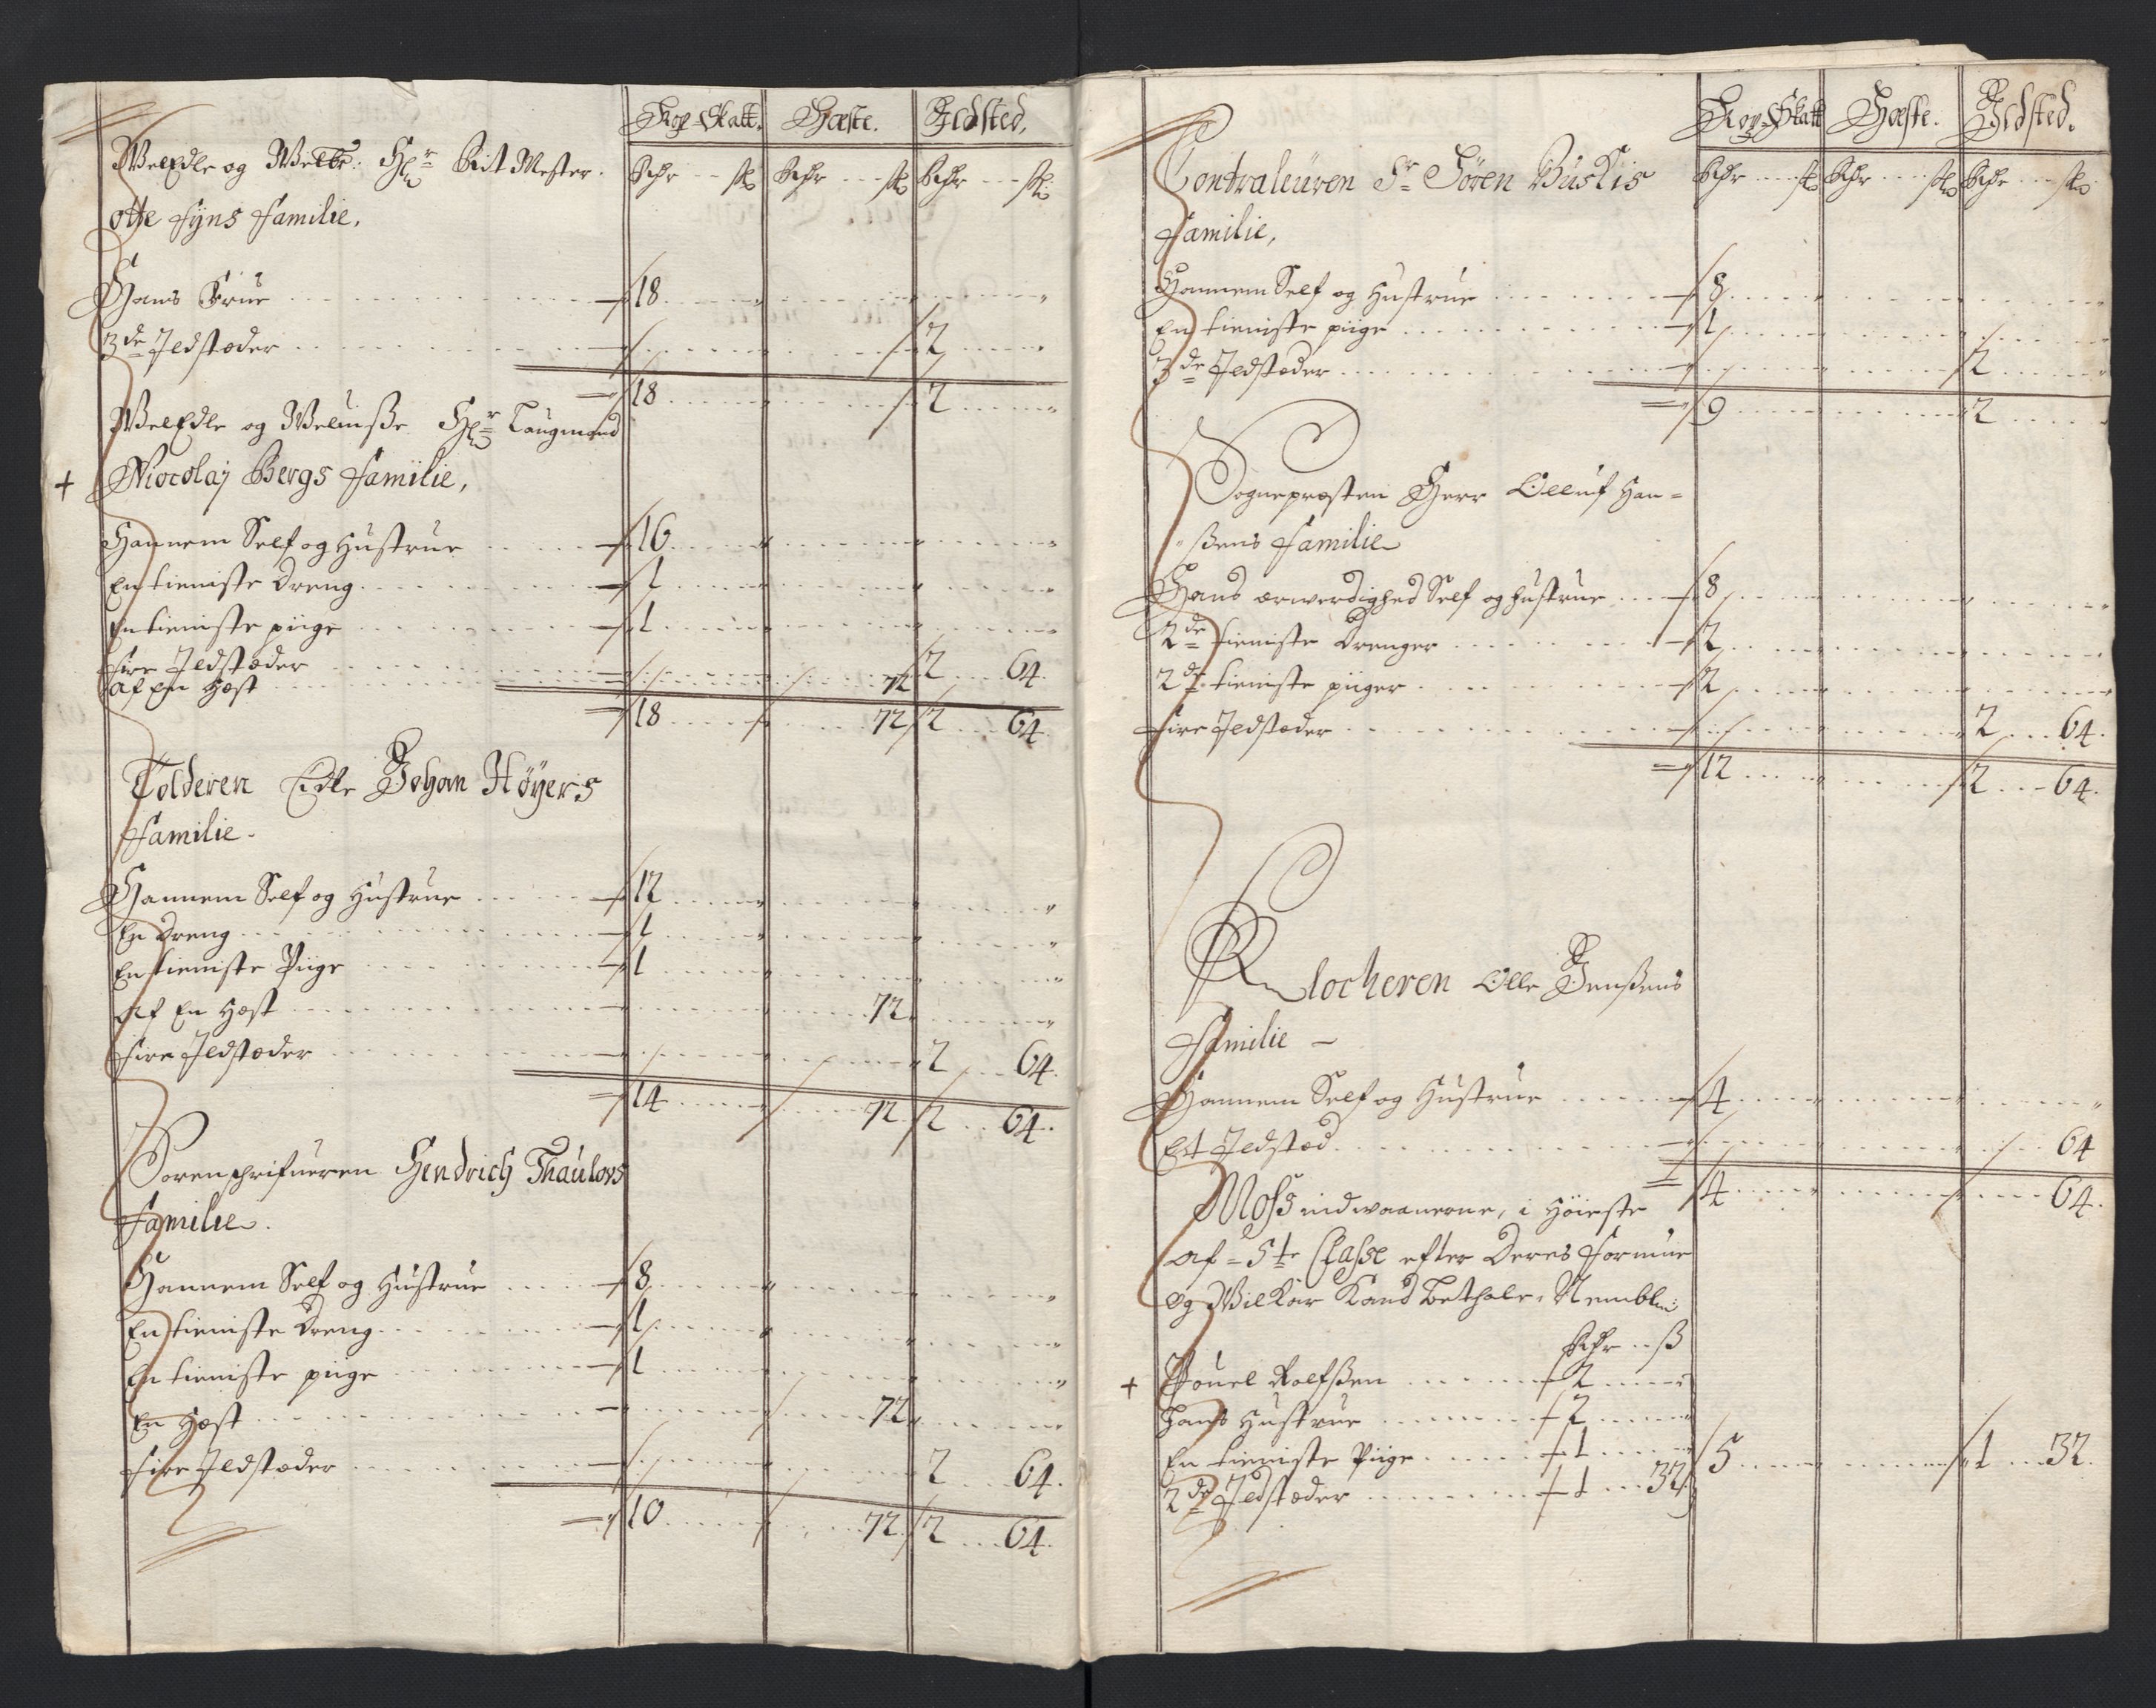 Kop-Skatt. Hæste. Ildsted.
WelEdle og Welbr: Hr Rit Mester. Rdr ß Rdr ß Rdr ß
otte Fyns Familie.
Hans Frue 18
3de Ildstæder 2
18 2
WelEdle og Weluiße Hr Laugmand
+ Nicolaj Bergs Familie,
Hannem Self og Hustrue 16
En tieniste Dreng 1
En tieniste piige 1
Fire Ildstæder 2 64.
af En Hæst 72
18 72 2 64.
Tolderen Edle Johan Höyers
Familie.
Hannem Self og Hustrue 12
En Dreng 1
En tieniste Piige 1
af En Hæst 72
Fire Ildstæder 2 64.
14 72 2 64.
Sorenschrifueren Hendrich Thaulovs
Familie.
Hannem Self og Hustrue 8
En tieniste Dreng 1
En tieniste piige 1
En Hæst 72
Fire Ildstæder 2 64.
10 72 2 64.
Kop-Skatt Hæste. Ildsted.
Contraleuren Sr Sören Buskis Rdr ß Rdr ß Rdr ß
Familie,
Hannem Self og Hustrue 8
En tieniste piige 1
3de Ildstæder 2
9 2
Sognepræsten Herr Olluf Han=
ßens Familie
Hans ærwerdighed Self og Hustrue 8
2de tieniste Drenger 2
2de tieniste piiger 2
Fire Ildstæder 2 64.
12 2 64.
Klocheren Olle Jenßens
Familie
Hannem Self og Hustrue 4
Et Ildsted 64
4 64.
Moss indwaanerne, i Höieste
af 5te Classe efter Deres Formue
og Wilkår Kand Bethale, Nembl:
Rdr ß
+ Pouel Rolfßen 2
Hans Hustrue 2
En tieniste Piige 1 5 1 32.
2de Ildstæder 1 32